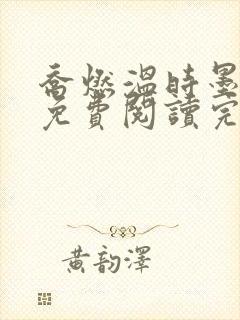 喬燃溫時墨
免費閱讀完
黃韵澤